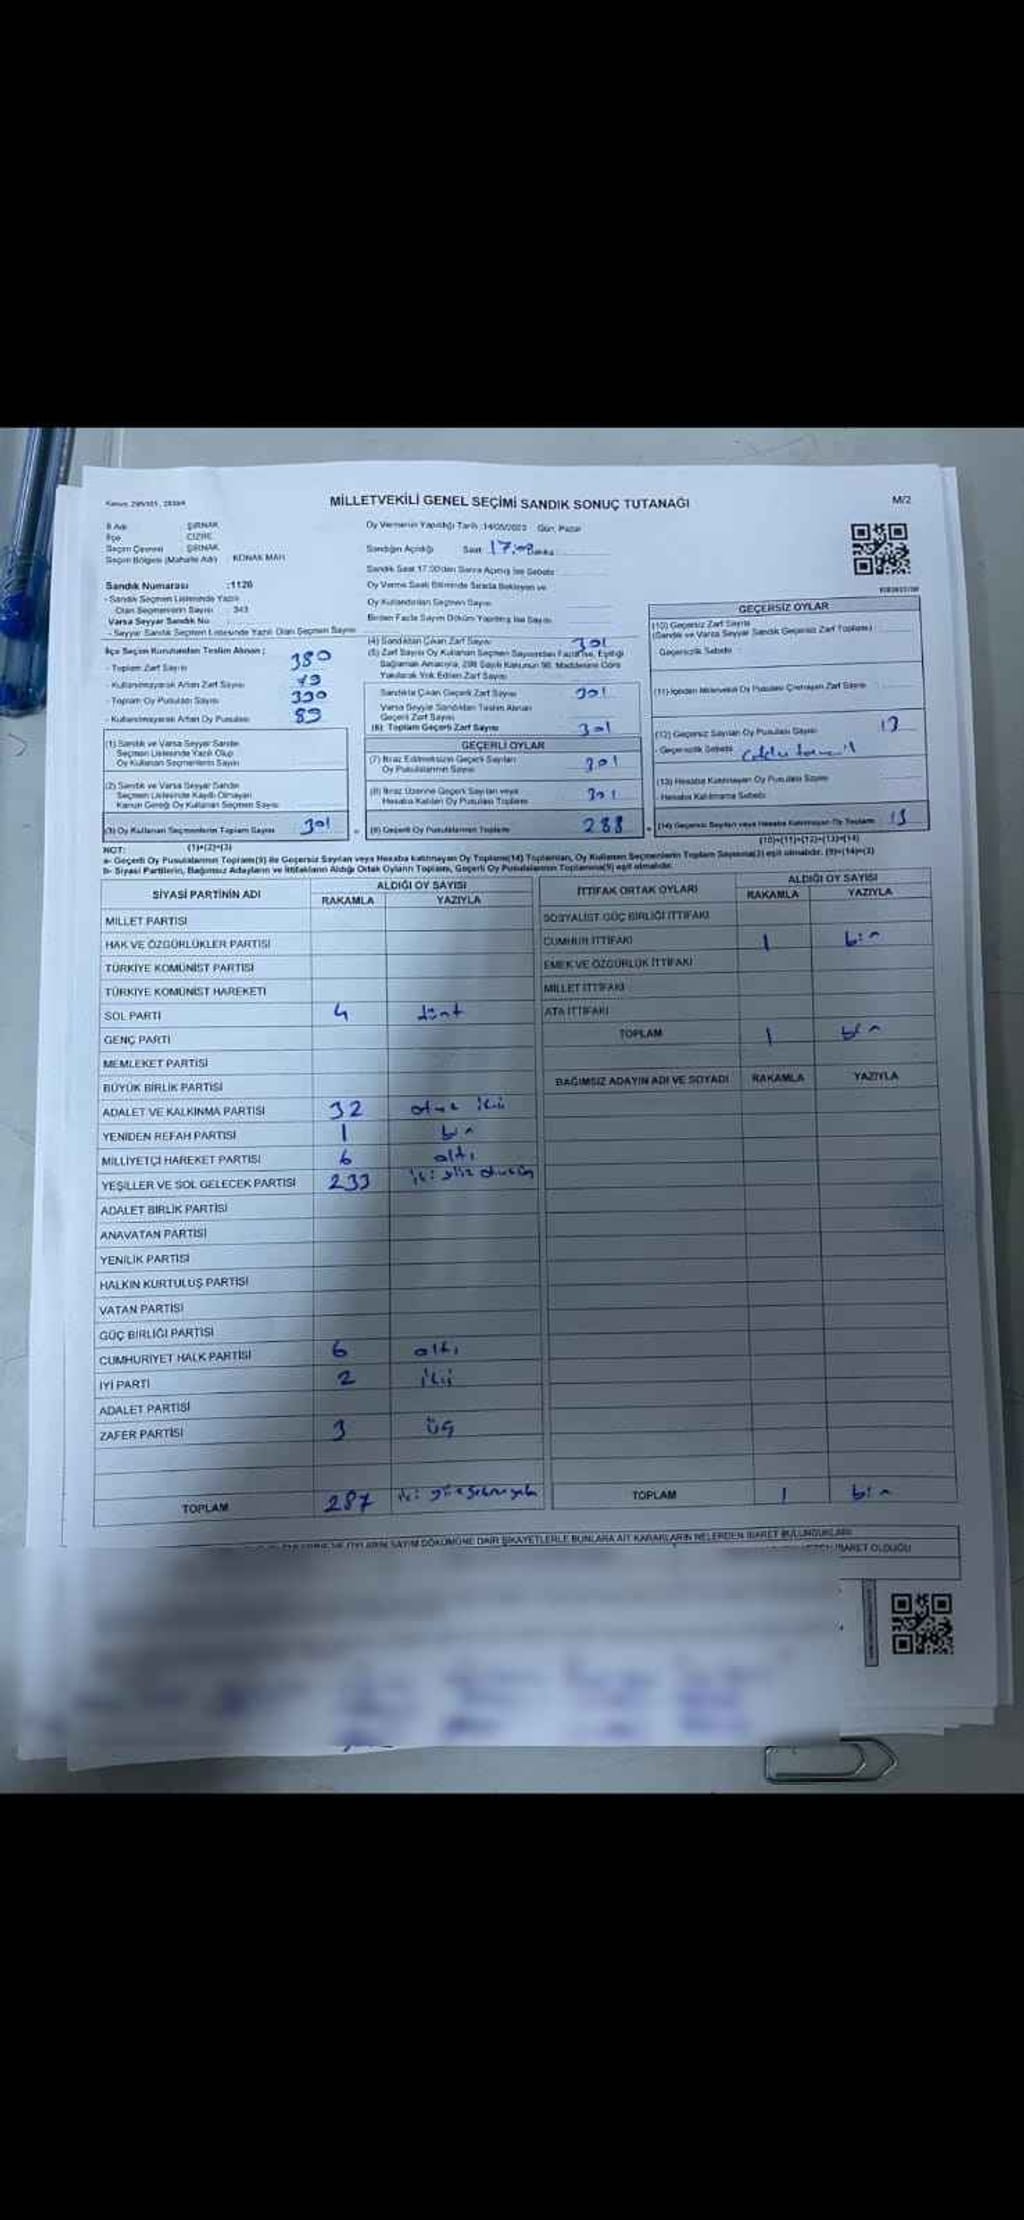 Kanun: 298/105, 2839/4
MİLLETVEKİLİ GENEL SEÇİMİ SANDIK SONUÇ TUTANAĞI
M/2
İl Adı : ŞIRNAK
İlçe : CİZRE
Seçim Çevresi : ŞIRNAK
Seçim Bölgesi (Mahalle Adı) : KONAK MAH.
Sandık Numarası :1126
- Sandık Seçmen Listesinde Yazılı
Olan Seçmenlerin Sayısı : 343
Varsa Seyyar Sandık No :
- Seyyar Sandık Seçmen Listesinde Yazılı Olan Seçmen Sayısı
İlçe Seçim Kurulundan Teslim Alınan ;
- Toplam Zarf Sayısı 380
- Kullanılmayarak Artan Zarf Sayısı 79
- Toplam Oy Pusulası Sayısı 390
- Kullanılmayarak Artan Oy Pusulası 89
(1) Sandık ve Varsa Seyyar Sandık
Seçmen Listesinde Yazılı Olup
Oy Kullanan Seçmenlerin Sayısı
(2) Sandık ve Varsa Seyyar Sandık
Seçmen Listesinde Kayıtlı Olmayan
Kanun Gereği Oy Kullanan Seçmen Sayısı
(3) Oy Kullanan Seçmenlerin Toplam Sayısı 301
(1)+(2)=(3)
Oy Vermenin Yapıldığı Tarih :14/05/2023 Gün: Pazar
Sandığın Açıldığı Saat 17:00
Sandık Saat 17:00'den Sonra Açılmış İse Sebebi
Oy Verme Saati Bitiminde Sırada Bekleyen ve
Oy Kullandırılan Seçmen Sayısı
Birden Fazla Sayım Döküm Yapılmış İse Sayısı
(4) Sandıktan Çıkan Zarf Sayısı 301
(5) Zarf Sayısı Oy Kullanan Seçmen Sayısından Fazla İse, Eşitliği
Sağlamak Amacıyla, 298 Sayılı Kanunun 98. Maddesine Göre
Yakılarak Yok Edilen Zarf Sayısı
Sandıkta Çıkan Geçerli Zarf Sayısı 301
Varsa Seyyar Sandıktan Teslim Alınan
Geçerli Zarf Sayısı
(6) Toplam Geçerli Zarf Sayısı 301
GEÇERLİ OYLAR
(7) İtiraz Edilmeksizin Geçerli Sayılan
Oy Pusulalarının Sayısı 301
(8) İtiraz Üzerine Geçerli Sayılan veya
Hesaba Katılan Oy Pusulası Toplamı 301
(9) Geçerli Oy Pusulalarının Toplamı 288
GEÇERSİZ OYLAR
(10) Geçersiz Zarf Sayısı
(Sandık ve Varsa Seyyar Sandık Geçersiz Zarf Toplamı)
Geçersizlik Sebebi
(11) İçinden Milletvekili Oy Pusulası Çıkmayan Zarf Sayısı
(12) Geçersiz Sayılan Oy Pusulası Sayısı 13
- Geçersizlik Sebebi
(13) Hesaba Katılmayan Oy Pusulası Sayısı
- Hesaba Katılmama Sebebi
(14) Geçersiz Sayılan veya Hesaba Katılmayan Oy Toplamı 13
(10)+(11)+(12)+(13)=(14)
NOT:
a- Geçerli Oy Pusulalarının Toplamı(9) ile Geçersiz Sayılan veya Hesaba katılmayan Oy Toplamı(14) Toplamları, Oy Kullanan Seçmenlerin Toplam Sayısına(3) eşit olmalıdır. (9)+(14)=(3)
b- Siyasi Partilerin, Bağımsız Adayların ve İttifakların Aldığı Ortak Oyların Toplamı, Geçerli Oy Pusulalarının Toplamına(9) eşit olmalıdır.
SİYASİ PARTİNİN ADI ALDIĞI OY SAYISI
RAKAMLA YAZIYLA
MİLLET PARTİSİ
HAK VE ÖZGÜRLÜKLER PARTİSİ
TÜRKİYE KOMÜNİST PARTİSİ
TÜRKİYE KOMÜNİST HAREKETİ
SOL PARTİ 4 dört
GENÇ PARTİ
MEMLEKET PARTİSİ
BÜYÜK BİRLİK PARTİSİ
ADALET VE KALKINMA PARTİSİ 32 otuz iki
YENİDEN REFAH PARTİSİ 1 bir
MİLLİYETÇİ HAREKET PARTİSİ 6 altı
YEŞİLLER VE SOL GELECEK PARTİSİ 233 iki yüz otuzüç
ADALET BİRLİK PARTİSİ
ANAVATAN PARTİSİ
YENİLİK PARTİSİ
HALKIN KURTULUŞ PARTİSİ
VATAN PARTİSİ
GÜÇ BİRLİĞİ PARTİSİ
CUMHURİYET HALK PARTİSİ 6 altı
İYİ PARTİ 2 iki
ADALET PARTİSİ
ZAFER PARTİSİ 3 üç
TOPLAM 287 iki yüz seksen yedi
İTTİFAK ORTAK OYLARI ALDIĞI OY SAYISI
RAKAMLA YAZIYLA
SOSYALİST GÜÇ BİRLİĞİ İTTİFAKI
CUMHUR İTTİFAKI 1 bir
EMEK VE ÖZGÜRLÜK İTTİFAKI
MİLLET İTTİFAKI
ATA İTTİFAKI
TOPLAM 1 bir
BAĞIMSIZ ADAYIN ADI VE SOYADI RAKAMLA YAZIYLA
TOPLAM 1 bir
OYLARIN SAYIM DÖKÜMÜNE DAİR ŞİKAYETLERLE BUNLARA AİT KARARLARIN NELERDEN İBARET BULUNDUKLARI
İBARET OLDUĞU